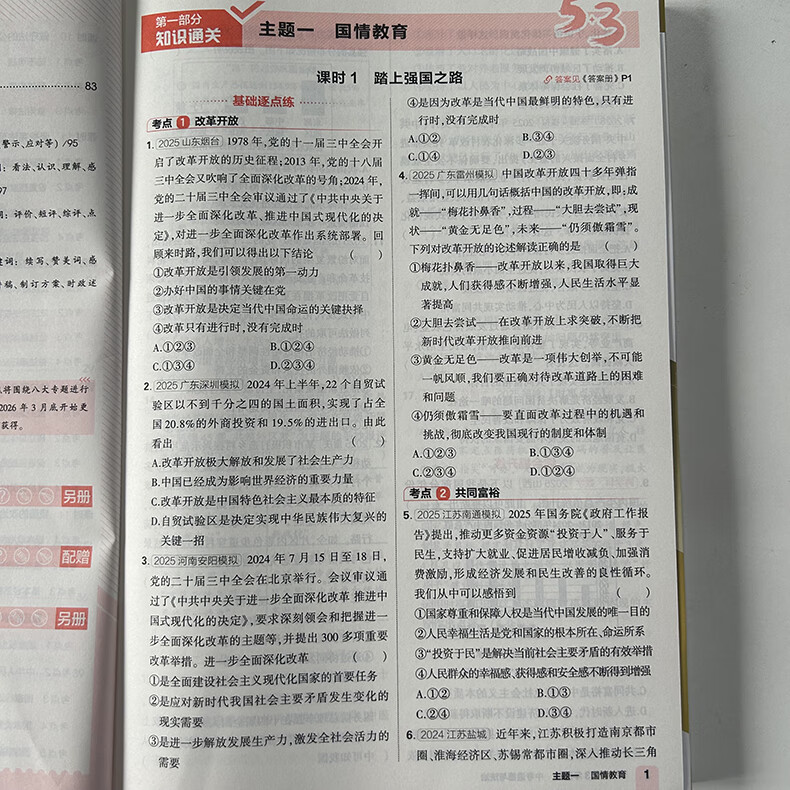 83
警示、应对等）/95
：看法、认识、理解、感
97
词：评价、短评、综评、点
词：续写、赞美词、感
稿、制订方案、时政述
将围绕八大专题进行
2026 年 3 月底开始更
获得。
另册
配赠
另册
第一部分
知识通关
主题一 国情教育
5·3
课时 1 踏上强国之路
答案见《答案册》P1
基础逐点练
考点 1 改革开放
1. 2025 山东烟台 1978 年,党的十一届三中全会开
启了改革开放的历史征程;2013 年,党的十八届
三中全会又吹响了全面深化改革的号角;2024 年,
党的二十届三中全会审议通过了《中共中央关于
进一步全面深化改革、推进中国式现代化的决
定》,对进一步全面深化改革作出系统部署。回
顾来时路,我们可以得出以下结论 ( )
①改革开放是引领发展的第一动力
②办好中国的事情关键在党
③改革开放是决定当代中国命运的关键抉择
④改革只有进行时,没有完成时
A.①②③ B.①②④
C.①③④ D.②③④
2. 2025 广东深圳模拟 2024 年上半年,22 个自贸试
验区以不到千分之四的国土面积,实现了占全
国 20.8%的外商投资和 19.5%的进出口。由此
看出 ( )
A.改革开放极大解放和发展了社会生产力
B.中国已经成为影响世界经济的重要力量
C.改革开放是中国特色社会主义最本质的特征
D.自贸试验区是决定实现中华民族伟大复兴的
关键一招
3. 2025 河南安阳模拟 2024 年 7 月 15 日至 18 日,
党的二十届三中全会在北京举行。会议审议通
过了《中共中央关于进一步全面深化改革 推进中
国式现代化的决定》,要求深刻领会和把握进一
步全面深化改革的主题等,并提出 300 多项重要
改革举措。进一步全面深化改革 ( )
①是全面建设社会主义现代化国家的首要任务
②是应对新时代我国社会主要矛盾发生变化的
现实需要
③是进一步解放发展生产力,激发全社会活力的
需要
④是因为改革是当代中国最鲜明的特色,只有进
行时,没有完成时
A.①② B.③④
C.①④ D.②③
4. 2025 广东雷州模拟 中国改革开放四十多年弹指
一挥间,可以用几句话概括中国的改革开放,即:成
就——“梅花扑鼻香”,过程——“大胆去尝试”,现
状——“黄金无足色”,未来——“仍须傲霜雪”。
下列对改革开放的论述解读正确的是 ( )
①梅花扑鼻香——改革开放以来,我国取得巨大
成就,人们获得感不断增强,人民生活水平显
著提高
②大胆去尝试——在改革开放上求突破,不断把
新时代改革开放推向前进
③黄金无足色——改革是一项伟大创举,不可能
一帆风顺,我们要正确对待改革道路上的困难
和问题
④仍须傲霜雪——要直面改革过程中的机遇和
挑战,彻底改变我国现行的制度和体制
A.①②③ B.①③④
C.②③④ D.①②④
考点 2 共同富裕
5. 2025 江苏南通模拟 2025 年国务院《政府工作报
告》提出,推动更多资金资源“投资于人”、服务于
民生,支持扩大就业、促进居民增收减负、加强消
费激励,形成经济发展和民生改善的良性循环。
我们从中可以感悟到 ( )
①国家尊重和保障人权是当代中国发展的唯一目的
②人民幸福生活是党和国家的根本所在、命运所系
③“投资于民”是解决当前社会主要矛盾的有效举措
④人民群众的幸福感、获得感和安全感不断得到增强
A.①② B.①③
C.②④ D.③④
6. 2024 江苏盐城 近年来,江苏积极打造南京都市
圈、淮海经济区、苏锡常都市圈,深入推动长三角
主题一 国情教育 1